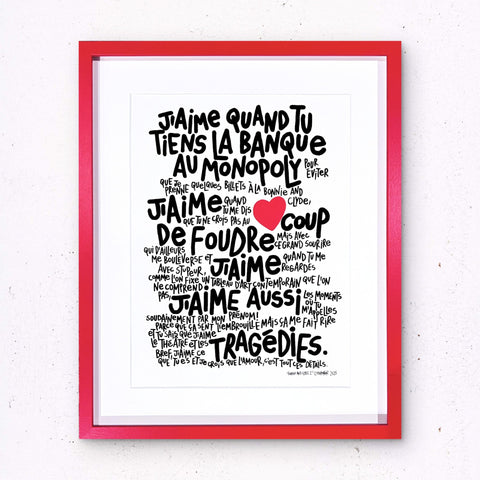 J'AIME QUAND TU
TIENS LA BANQUE
AU MONOPOLY POUR ÉVITER
QUE JE PRENNE QUELQUES BILLETS À LA BONNIE AND CLYDE,
J'AIME QUAND TU ME DIS
QUE TU NE CROIS PAS AU COUP
DE FOUDRE MAIS AVEC CE GRAND SOURIRE
QUI D'AILLEURS ME BOULEVERSE ET J'AIME QUAND TU ME REGARDES
AVEC STUPEUR,
COMME L'ON FIXE UN TABLEAU D'ART CONTEMPORAIN QUE L'ON
NE COMPREND PAS, J'AIME AUSSI LES MOMENTS OÙ TU M'APPELLES
SOUDAINEMENT PAR MON PRÉNOM!
PARCE QUE ÇA SENT L'EMBROUILLE MAIS ÇA ME FAIT RIRE
ET TU SAIS QUE J'AIME
LE THÉÂTRE ET LES TRAGÉDIES.
BREF, J'AIME CE
QUE TU ES ET JE CROIS QUE L'AMOUR, C'EST TOUT CES DÉTAILS.